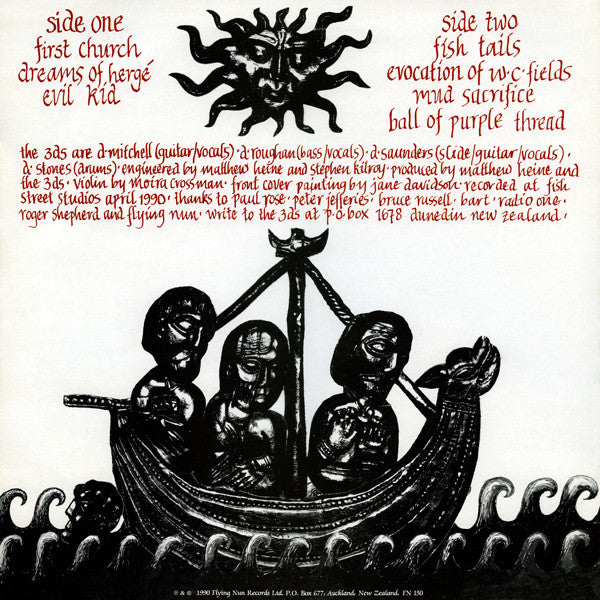 side one
first church
dreams of hergé
evil kid
side two
fish tails
evocation of w·c·fields
mud sacrifice
ball of purple thread
the 3ds are d·mitchell(guitar/vocals)·d·roughan(bass/vocals)·d·saunders(slide/guitar/vocals)·
d·stones(drums)·engineered by matthew heine and stephen kilroy·produced by matthew heine and
the 3ds·violin by moira crossman·front cover painting by jane davidson·recorded at fish
street studios april 1990·thanks to paul rose·peter jefferies·bruce russell·bart·radio one·
roger shepherd and flying nun·write to the 3ds at p·o·box 1678 dunedin new zealand·
℗ & © 1990 Flying Nun Records Ltd. P.O. Box 677, Auckland. New Zealand. FN 150